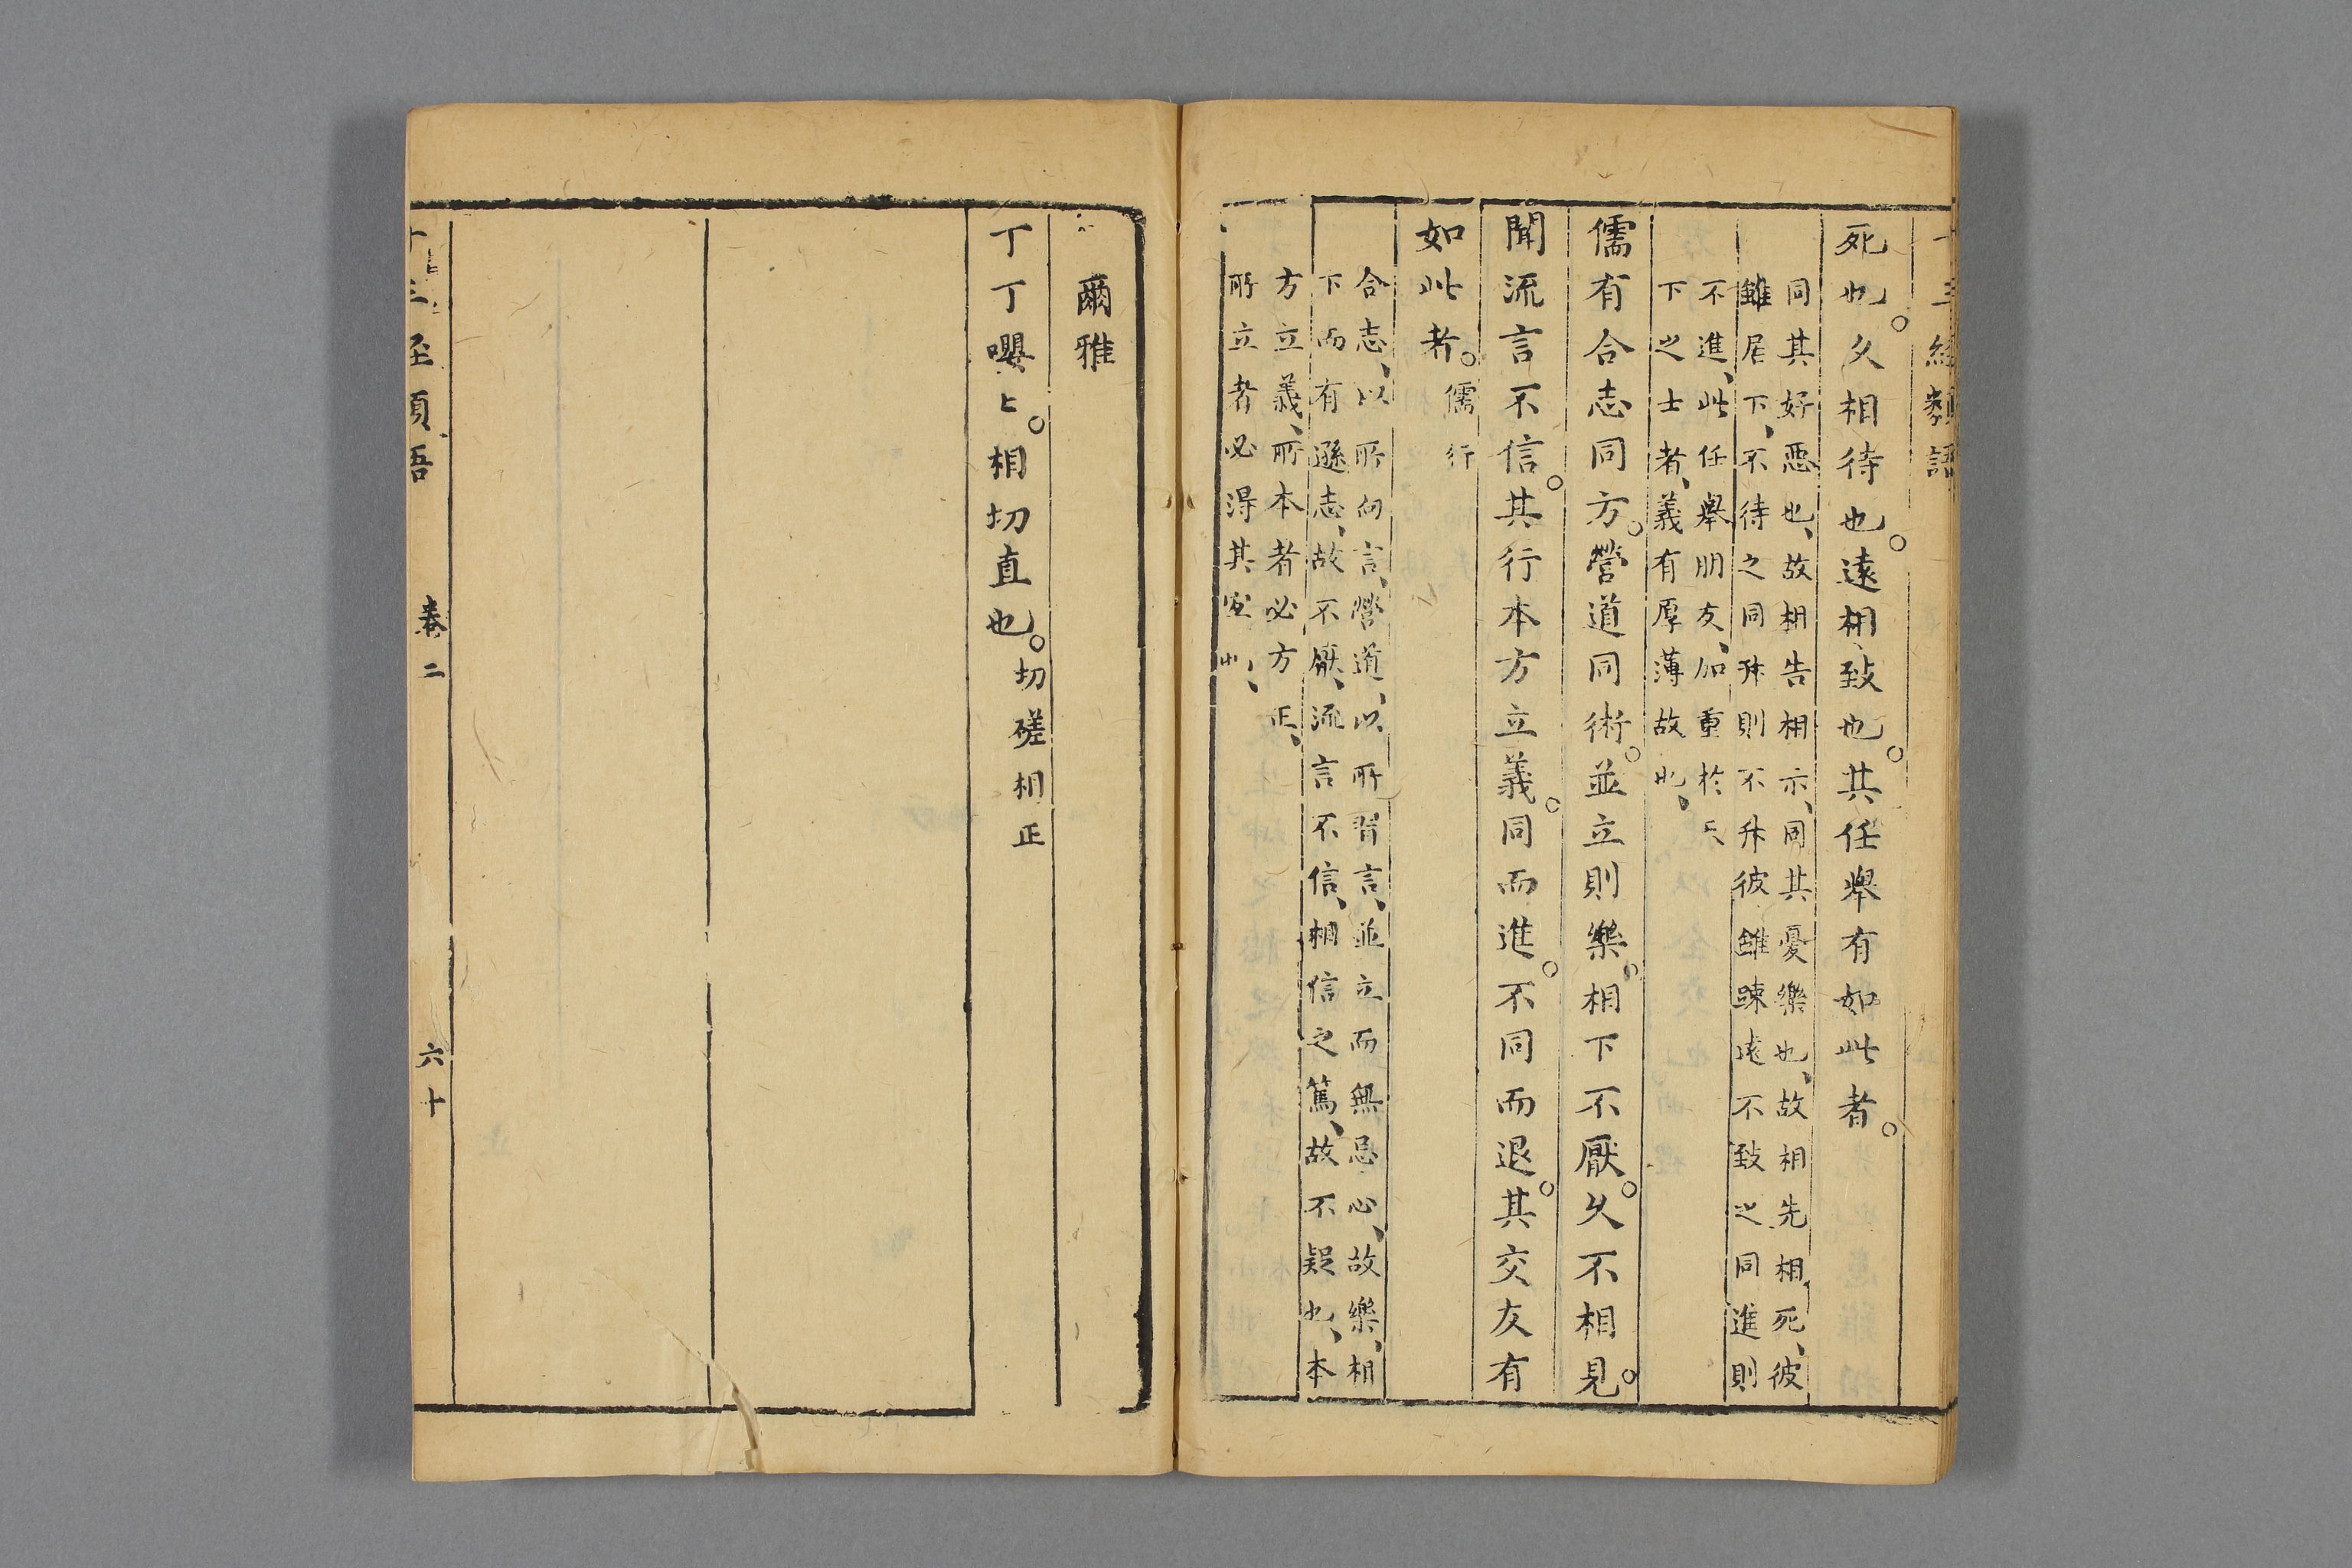 十三經類語
死也。久相待也。遠相致也。其任舉有如此者。
同其好惡也、故相告相示、同其憂樂也、故相先相死、彼
雖居下、不待之同升則不升彼雖踈遠不致之同進則
不進、此任舉朋友、加重於天
下之士者、義有厚薄故也、
儒有合志同方。營道同術。並立則樂。相下不厭。久不相見。
聞流言不信。其行本方立義。同而進。不同而退。其交友有
如此者。儒行
合志、以所向言、營道、以所習言、並立而無忌心、故樂、相
下而有遜志、故不厭、流言不信、相信之篤、故不疑也、本
方立義、所本者必方正、
所立者必得其宜也、
爾雅
丁丁嚶〻。相切直也。切磋相正
十三經類語 卷二 六十